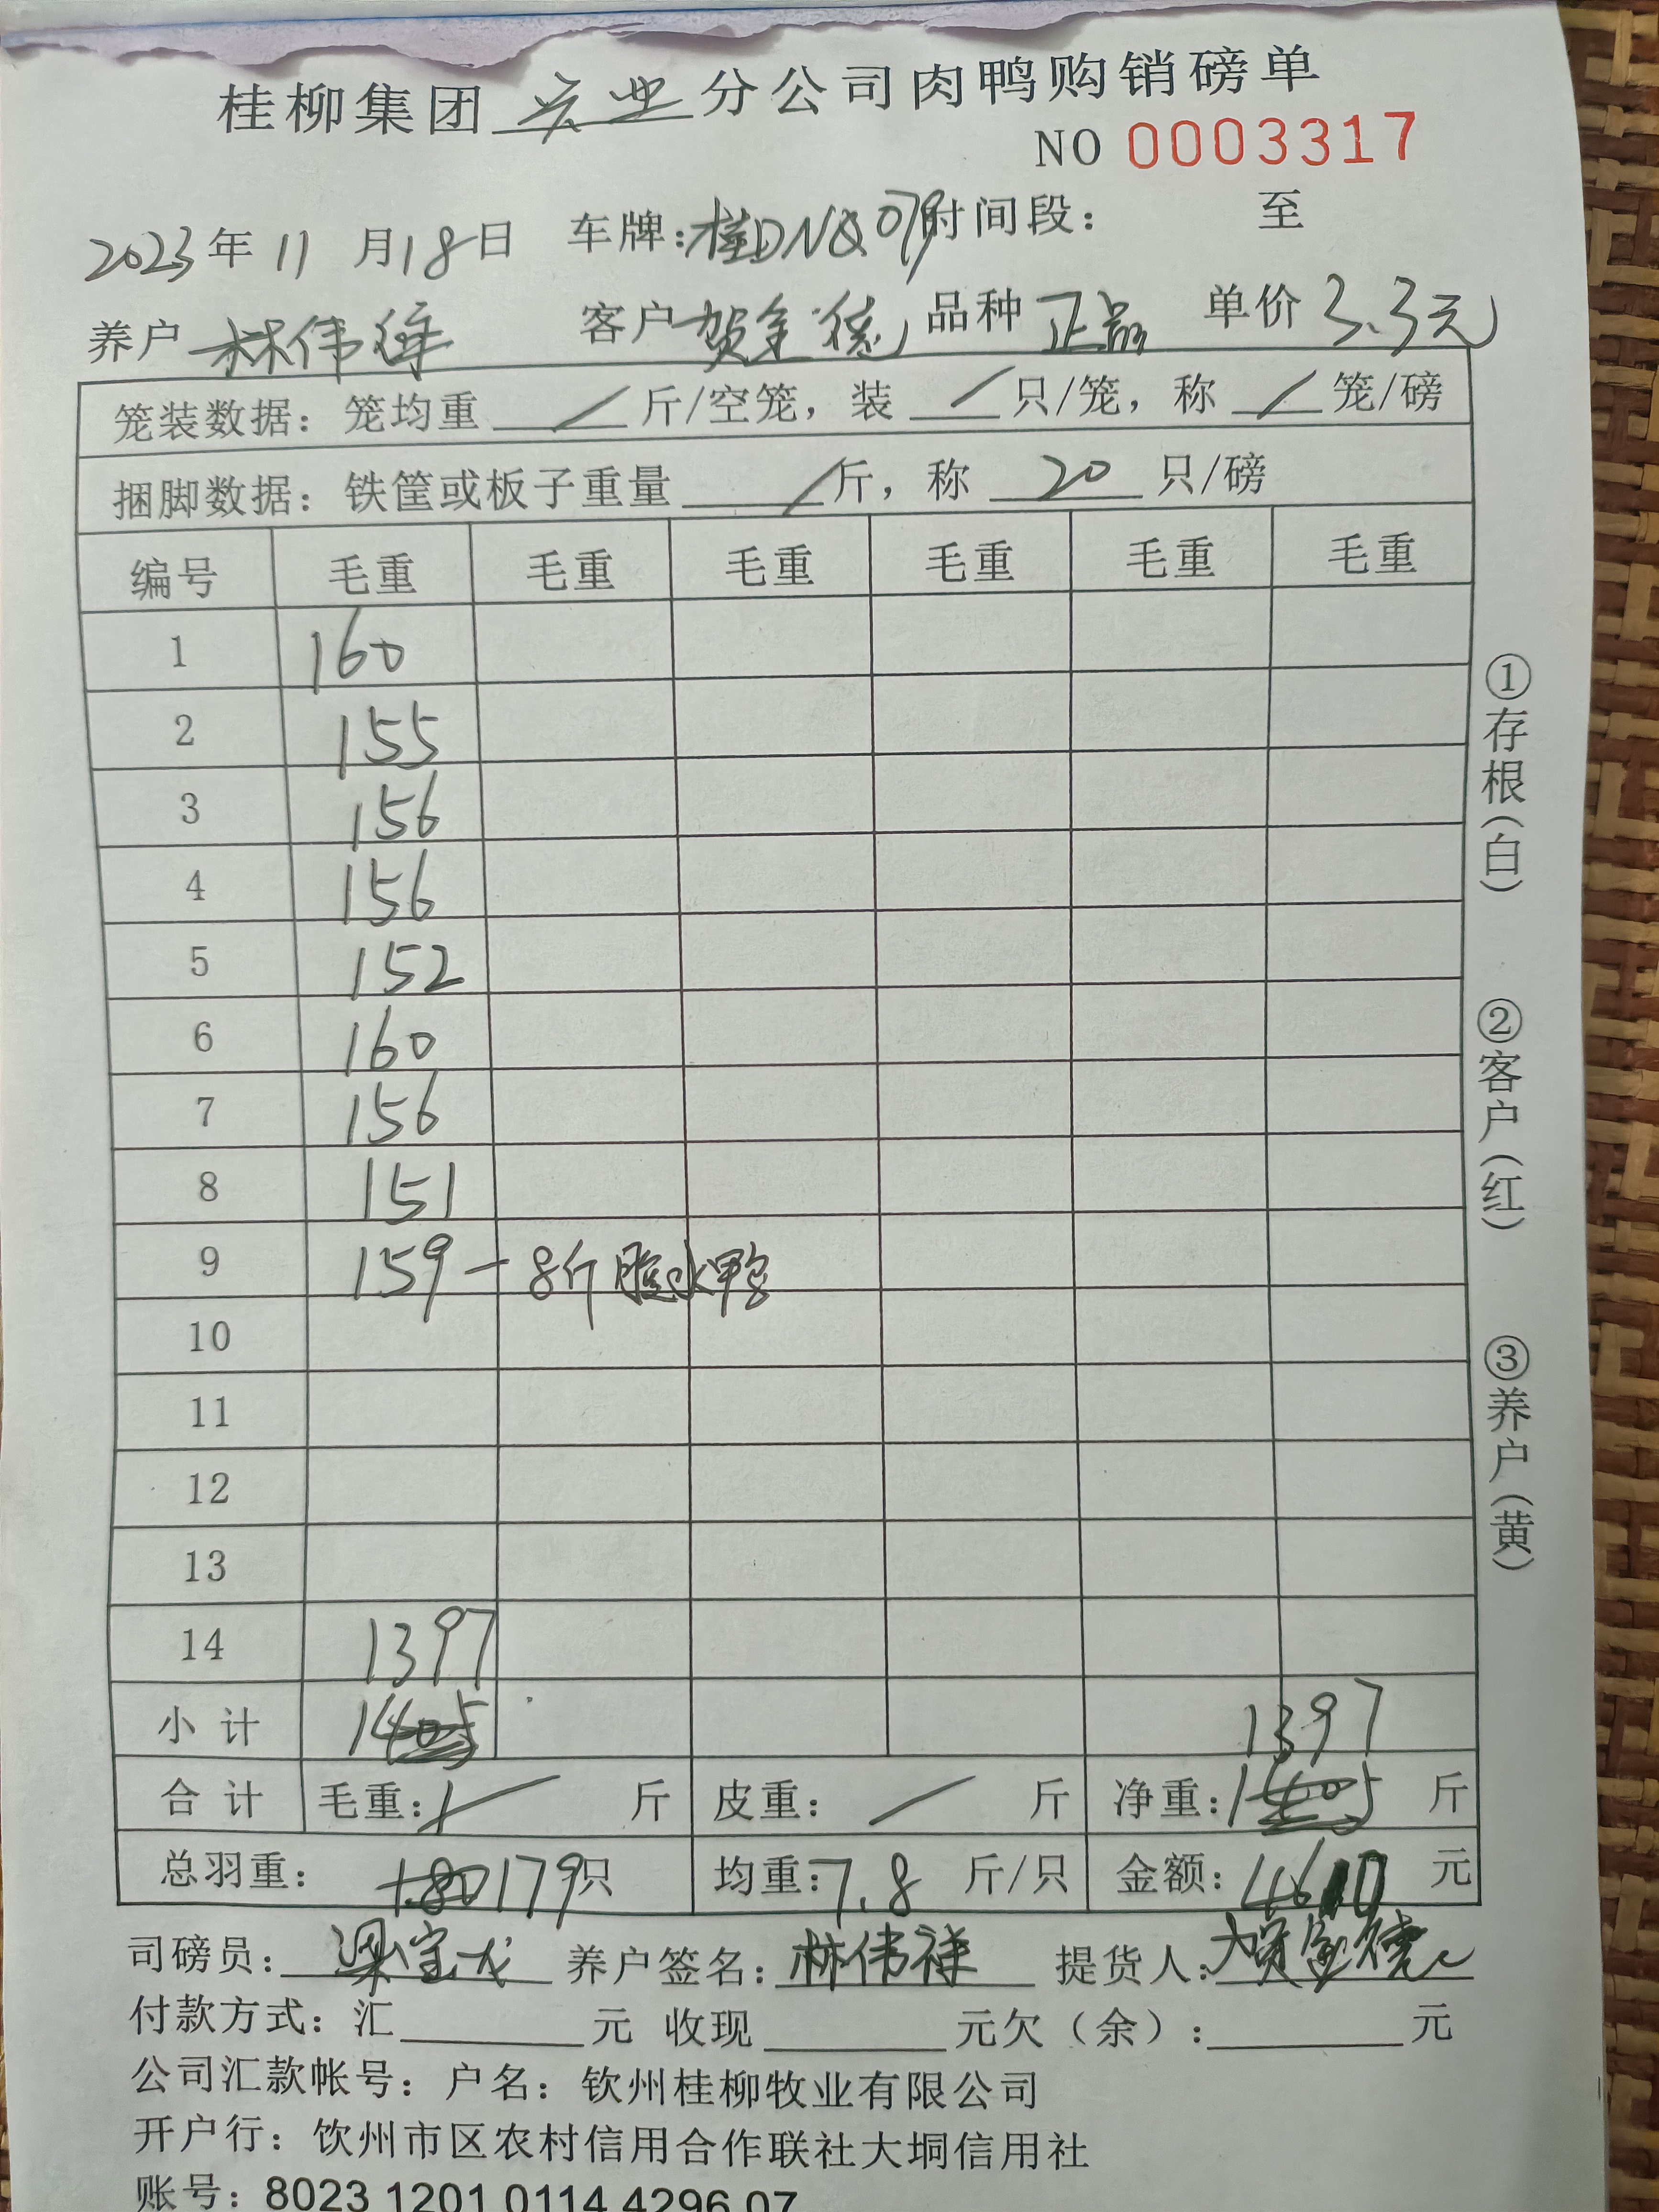 桂柳集团兴业分公司肉鸭购销磅单
NO 0003317
2023年11月18日 车牌:桂DNQ079时间段: 至
养户 林伟祥 客户贺金德 品种 正品 单价 3.3元
笼装数据: 笼均重 / 斤/空笼, 装 / 只/笼, 称 / 笼/磅
捆脚数据: 铁筐或板子重量 / 斤, 称 20 只/磅
编号 毛重 毛重 毛重 毛重 毛重 毛重
1 160
2 155
3 156
4 156
5 152
6 160
7 156
8 151
9 159-8斤腹水鸭
10
11
12
13
14 1397
小计 1405 1397
合计 毛重: / 斤 皮重: / 斤 净重:1405 斤
总羽重: 180 179只 均重:7.8 斤/只 金额:4610 元
司磅员: 梁宝龙 养户签名:林伟祥 提货人:贺金德
付款方式: 汇 元 收现 元欠(余): 元
公司汇款帐号: 户名: 钦州桂柳牧业有限公司
开户行: 钦州市区农村信用合作联社大垌信用社
账号: 8023 1201 0114 4296 07
①存根(白)
②客户(红)
③养户(黄)